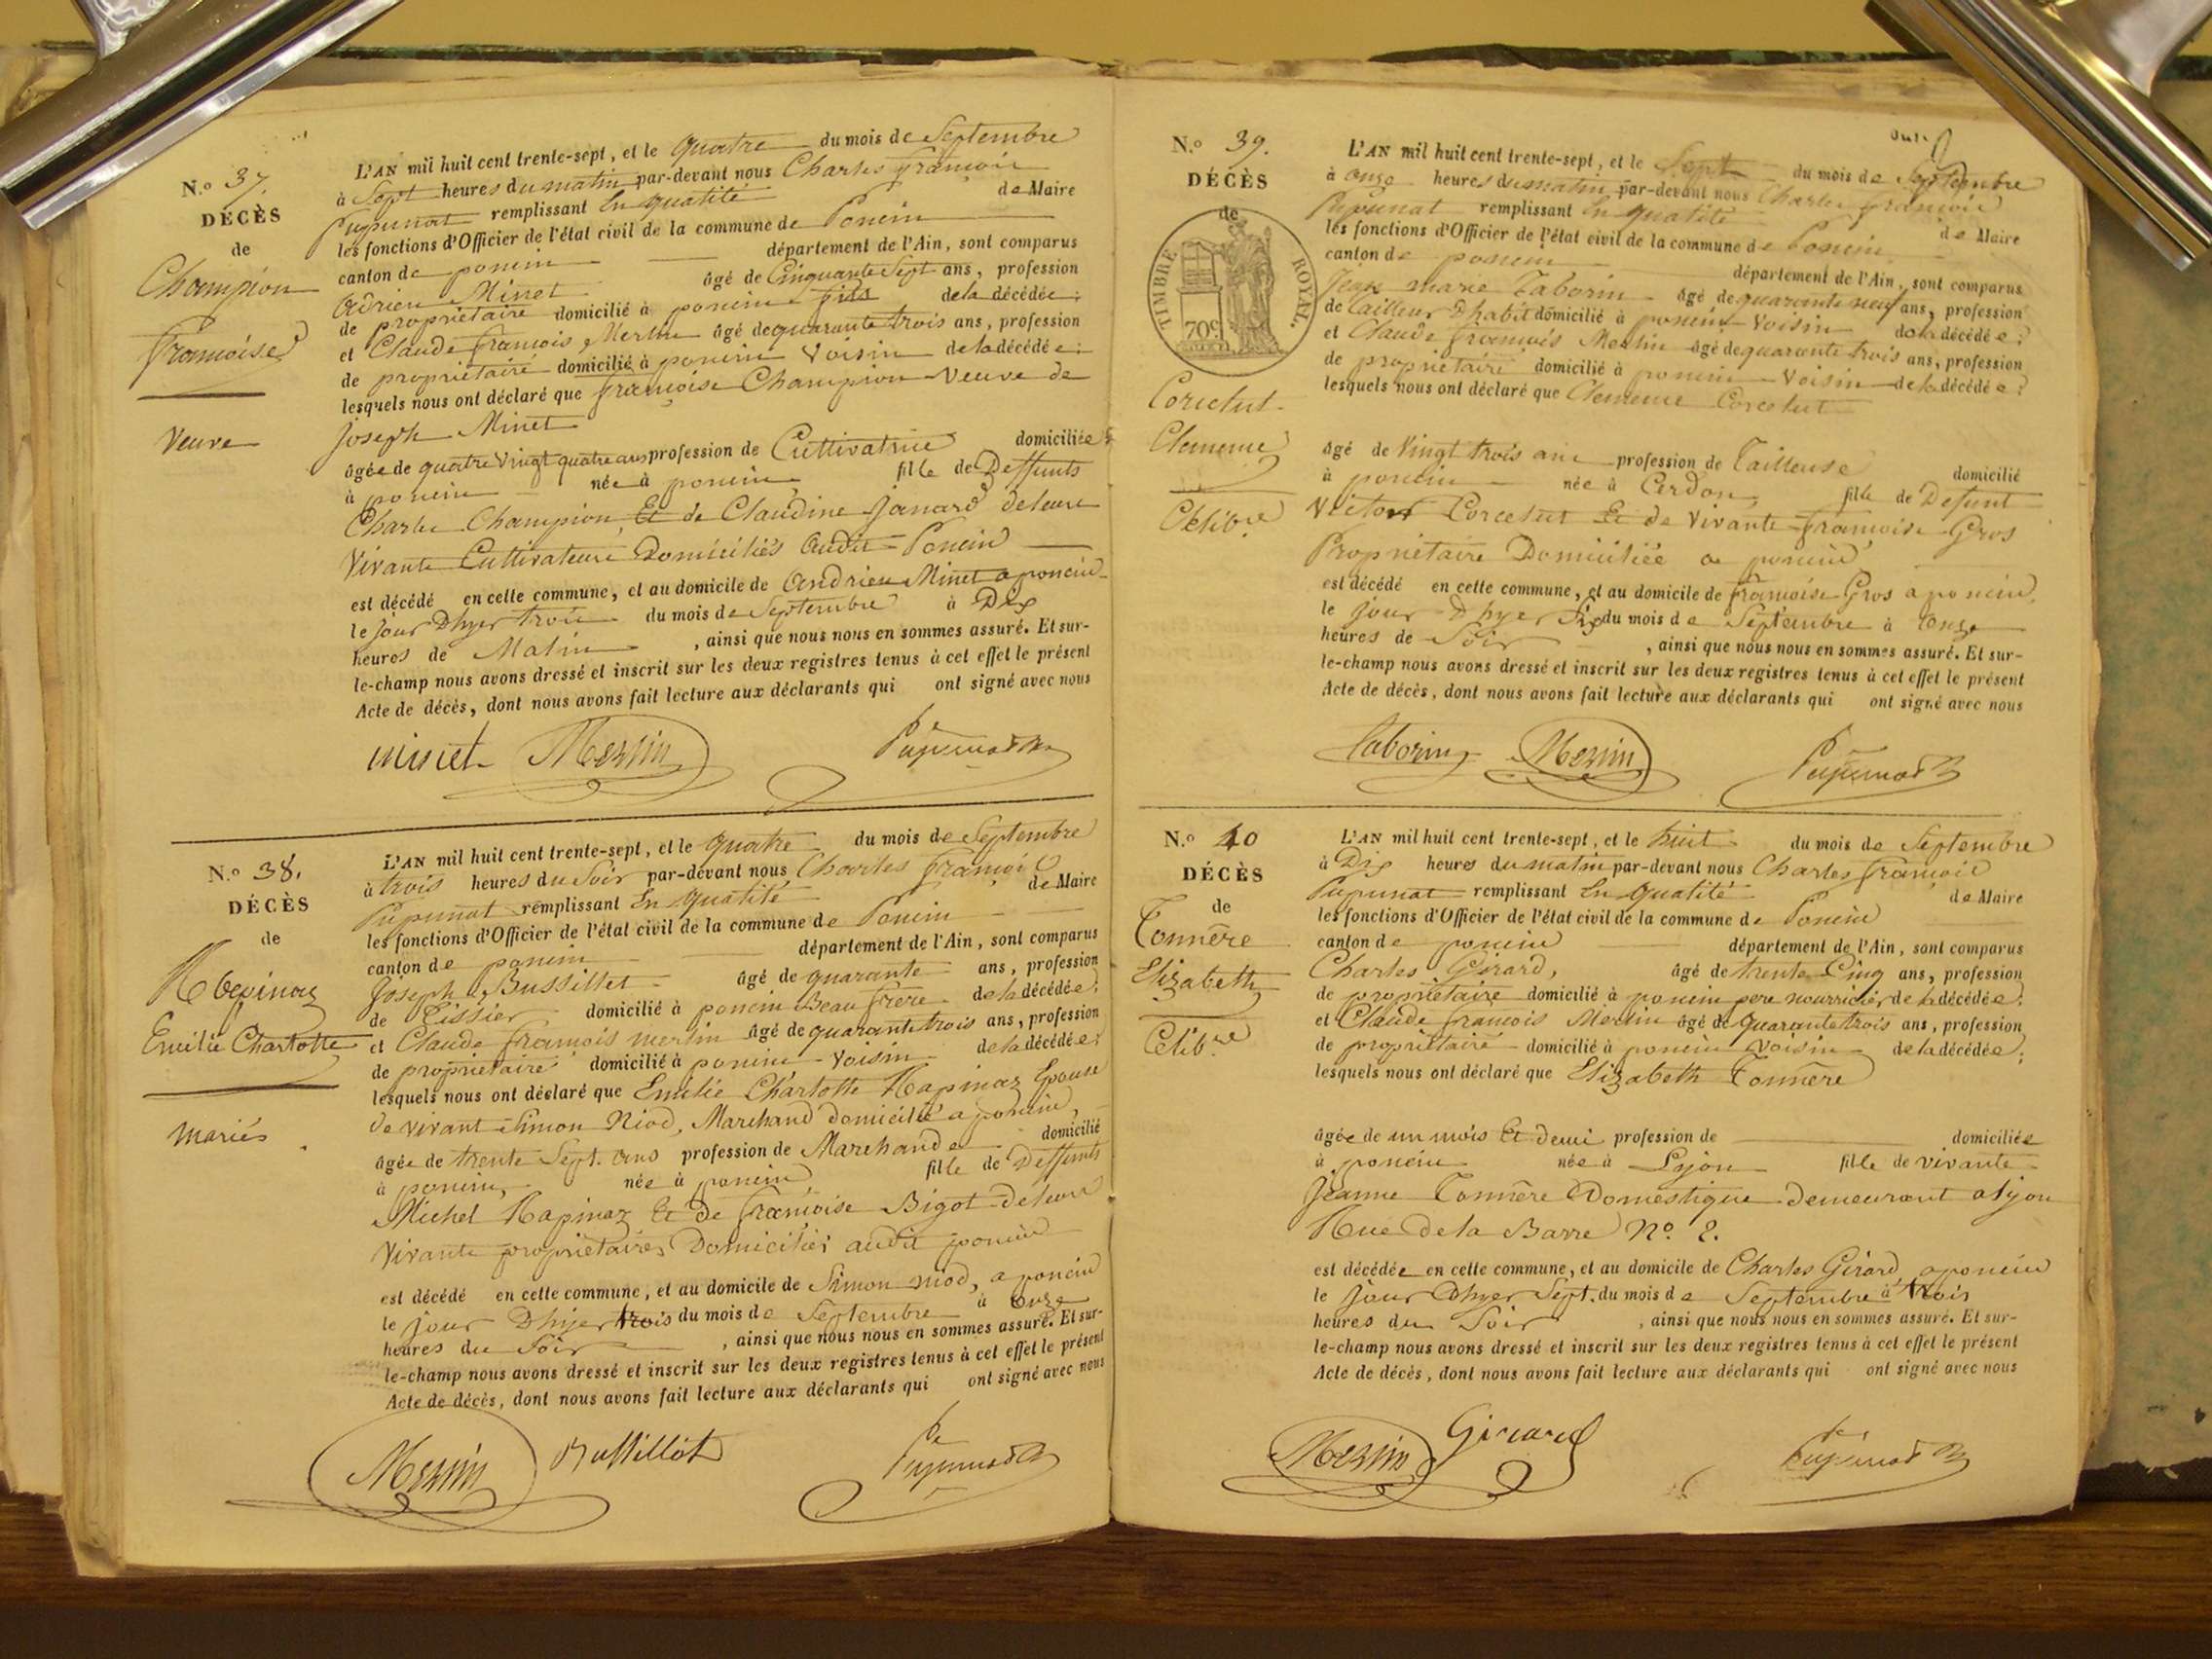 N.o 37.
DÉCÈS
de
Champion
françoise
Veuve
L'AN mil huit cent trente-sept, et le quatre du mois de Septembre
à Sept heures du matin par-devant nous Charles françois
Pupunat remplissant En qualité de Maire
les fonctions d'Officier de l'état civil de la commune de Poncin
canton de poncin département de l'Ain, sont comparus
Adrien Minet âgé de Cinquante Sept ans, profession
de propriétaire domicilié à poncin fils de la décédée;
et Claude françois Merlin âgé de quarante trois ans, profession
de propriétaire domicilié à poncin Voisin de la décédée;
lesquels nous ont déclaré que françoise Champion Veuve de
Joseph Minet
âgée de quatre Vingt quatre ans profession de Cultivatrice domiciliée
à poncin née à poncin fille de Deffunts
Charles Champion Et de Claudine Janard deleur
Vivants Cultivateurs Domiciliés audit Poncin
est décédé en cette commune, et au domicile de Andrien Minet a poncin
le jour Dhyer trois du mois de Septembre à Dix
heures de Matin, ainsi que nous nous en sommes assuré. Et sur-
le-champ nous avons dressé et inscrit sur les deux registres tenus à cet effet le présent
Acte de décès, dont nous avons fait lecture aux déclarants qui ont signé avec nous
minet Merlin Pupunat
N.o 38.
DÉCÈS
de
Rapinaz
Emilie Charlotte
mariés
L'AN mil huit cent trente-sept, et le quatre du mois de Septembre
à trois heures du Soir par-devant nous Charles françois
Pupunat remplissant En qualité de Maire
les fonctions d'Officier de l'état civil de la commune de Poncin
canton de poncin département de l'Ain, sont comparus
Joseph Bussillet âgé de quarante ans, profession
de Tissier domicilié à poncin Beau frère de la décédée;
et Claude françois merlin âgé de quarante trois ans, profession
de propriétaire domicilié à poncin Voisin de la décédée;
lesquels nous ont déclaré que Emilie Charlotte Rapinaz Epouse
de vivant Simon Niod, Marchand domicilié a poncin,
âgée de trente Sept. ans profession de Marchande domicilié
à poncin, née à poncin fille de Deffunts
Michel Rapinaz Et De françoise Bigot deleur
Vivants propriétaires Domiciliés audit poncin
est décédé en cette commune, et au domicile de Simon niod, a poncin
le jour Dhyer trois du mois de Septembre à onze
heures du Soir, ainsi que nous nous en sommes assuré. Et sur-
le-champ nous avons dressé et inscrit sur les deux registres tenus à cet effet le présent
Acte de décès, dont nous avons fait lecture aux déclarants qui ont signé avec nous
Merlin Bussillet Pupunat
N.o 39.
DÉCÈS
de
TIMBRE ROYAL.
709
Corcelut
Clemence
Célibre
L'AN mil huit cent trente-sept, et le Sept du mois de Septembre
à onze heures du matin par-devant nous Charles françois
Pupunat remplissant En qualité de Maire
les fonctions d'Officier de l'état civil de la commune de Poncin
canton de poncin département de l'Ain, sont comparus
Jean marie Taborin âgé de quarante neuf ans, profession
de Tailleur D'habit domicilié à poncin Voisin de la décédée;
et Claude françois Merlin âgé de quarante trois ans, profession
de propriétaire domicilié à poncin Voisin de la décédée;
lesquels nous ont déclaré que Clemence Corcelut
âgé de Vingt trois ans profession de Tailleuse domicilié
à poncin née à Cerdon fille de Defunt
Victor Corcelut Et de Vivante françoise Gros
Propriétaire Domiciliée a poncin
est décédé en cette commune, et au domicile de françoise Gros a poncin
le jour Dhyer Six du mois de Septembre à onze
heures de Soir, ainsi que nous nous en sommes assuré. Et sur-
le-champ nous avons dressé et inscrit sur les deux registres tenus à cet effet le présent
Acte de décès, dont nous avons fait lecture aux déclarants qui ont signé avec nous
Taborin Merlin Pupunat
N.o 40
DÉCÈS
de
Tonnère
Elizabeth
Célib.re
L'AN mil huit cent trente-sept, et le huit du mois de Septembre
à Dix heures du matin par-devant nous Charles françois
Pupunat remplissant En qualité de Maire
les fonctions d'Officier de l'état civil de la commune de Poncin
canton de poncin département de l'Ain, sont comparus
Charles Girard, âgé de trente Cinq ans, profession
de propriétaire domicilié à poncin pere nourricier de la décédée;
et Claude françois Merlin âgé de quarante trois ans, profession
de propriétaire domicilié à poncin voisin de la décédée;
lesquels nous ont déclaré que Elizabeth Tonnère
âgée de un mois Et demi profession de domiciliée
à poncin née à Lyon fille de vivante
Jeanne Tonnère Domestique demeurant a Lyon
Rue de la Barre No. 2.
est décédée en cette commune, et au domicile de Charles Girard a poncin
le jour Dhyer Sept. du mois de Septembre à trois
heures du Soir, ainsi que nous nous en sommes assuré. Et sur-
le-champ nous avons dressé et inscrit sur les deux registres tenus à cet effet le présent
Acte de décès, dont nous avons fait lecture aux déclarants qui ont signé avec nous
Merlin Girard Pupunat